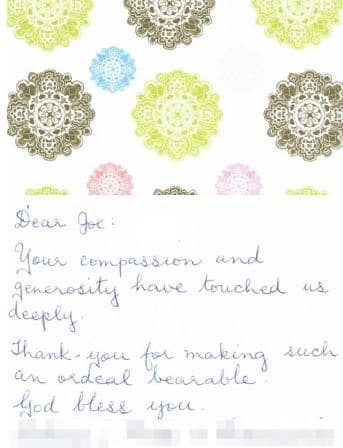 Dear Joe:
Your compassion and
generosity have touched us
deeply.
Thank-you for making such
an ordeal bearable.
God bless you.